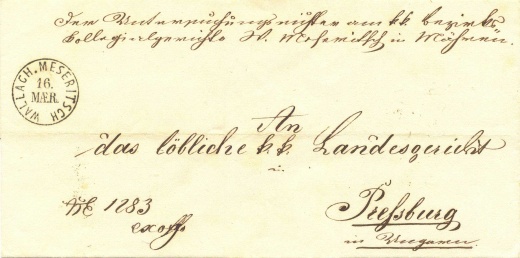 Der Untersuchungsrichter am k k Bezirks
Collegialgerichte W. Meseritsch in Mähren.
WALLACH. MESERITSCH
16.
MÆR.
An
das löbliche k. k. Landesgericht
in
Preſsburg
in Ungarn.
N 1283
exoffo